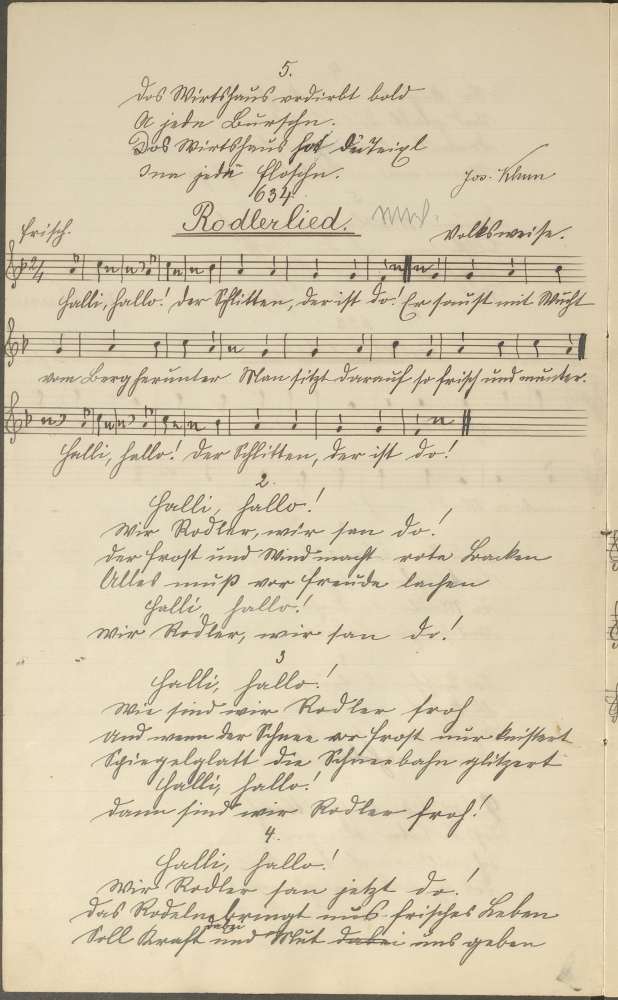 5.
Das Wirtshaus vodirbt bald
A jede Burschn.
Das Wirtshaus hat da Teixl
Ina jeda Flaschn.
Jos. Klam
634
Rodlerlied.
Frisch.
Volksweise.
2/4
Halli, hallo! der Schlitten, der ist do! Er saust mit Wucht
vom Berg herunter Man sitzt darauf so frisch und munter.
Halli, hallo! der Schlitten, der ist do!
2.
Halli, hallo!
Wir Rodler, wir san do!
Der Frost und Wind macht rote Backen
Alles muß vor Freude lachen
Halli, hallo!
Wir Rodler, wir san do!
3
Halli, hallo!
Wie sind wir Rodler froh
Und wenn der Schnee vor Frost nur knistert
Spiegelglatt die Schneebahn glitzert
Halli, hallo!
Dann sind wir Rodler froh!
4.
Halli, hallo!
Wir Rodler san jetzt do!
Das Rodeln bringt uns frisches Leben
dabei
Soll Kraft und Mut dabei uns geben